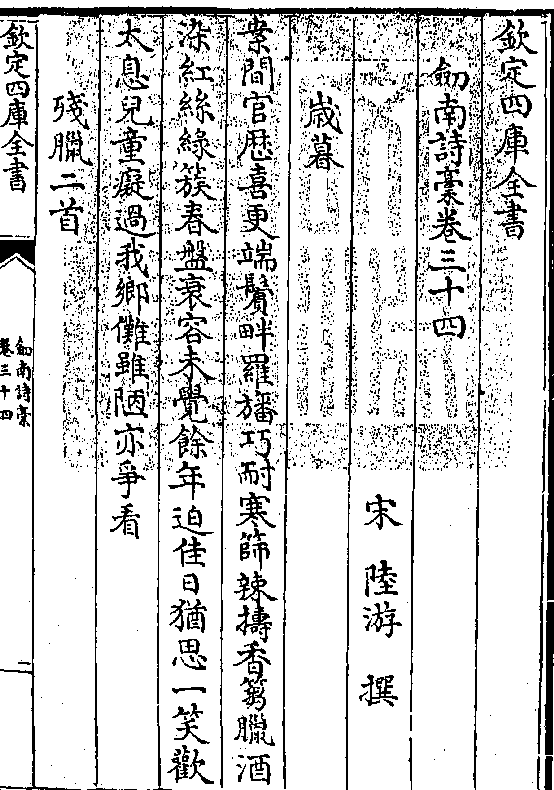 欽定四庫全書
劒南詩藁卷三十四
宋 陸游 撰
歲暮
案間官歴喜更端鬢畔羅旛巧耐寒篩辣擣香篘臘酒
染紅絲綠簇春盤衰容未覺餘年迫佳日猶思一笑歡
太息兒童癡過我鄉儺雖陋亦爭看
殘臘二首
欽定四庫全書
劒南詩藁
卷三十四
一